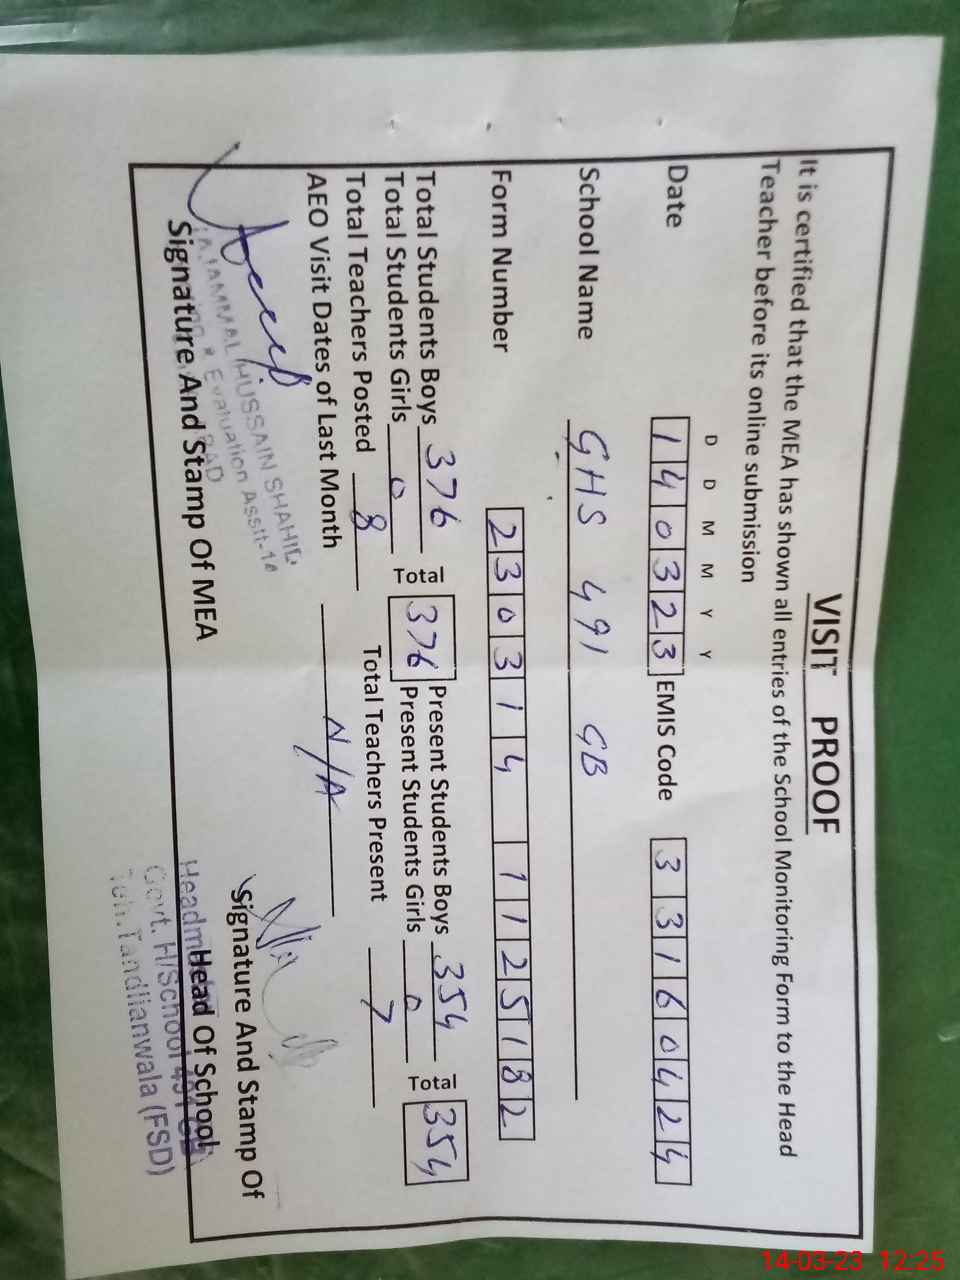 VISIT PROOF
It is certified that the MEA has shown all entries of the School Monitoring Form to the Head
Teacher before its online submission
D D M M Y Y
Date 140323 EMIS Code 33160424
School Name GHS 491 GB
Form Number 230314 1125182
Total Students Boys 376 Total 376 Present Students Boys 354 Total 354
Total Students Girls 0 Present Students Girls 0
Total Teachers Posted 8 Total Teachers Present 7
AEO Visit Dates of Last Month N/A
HUSSAIN SHAHID
Evaluation Asstt-
Signature And Stamp Of MEA
Signature And Stamp Of
Head Of School
Govt. H/School 491 GB
Teh. Tandlianwala (FSD)
14-03-23 12:25